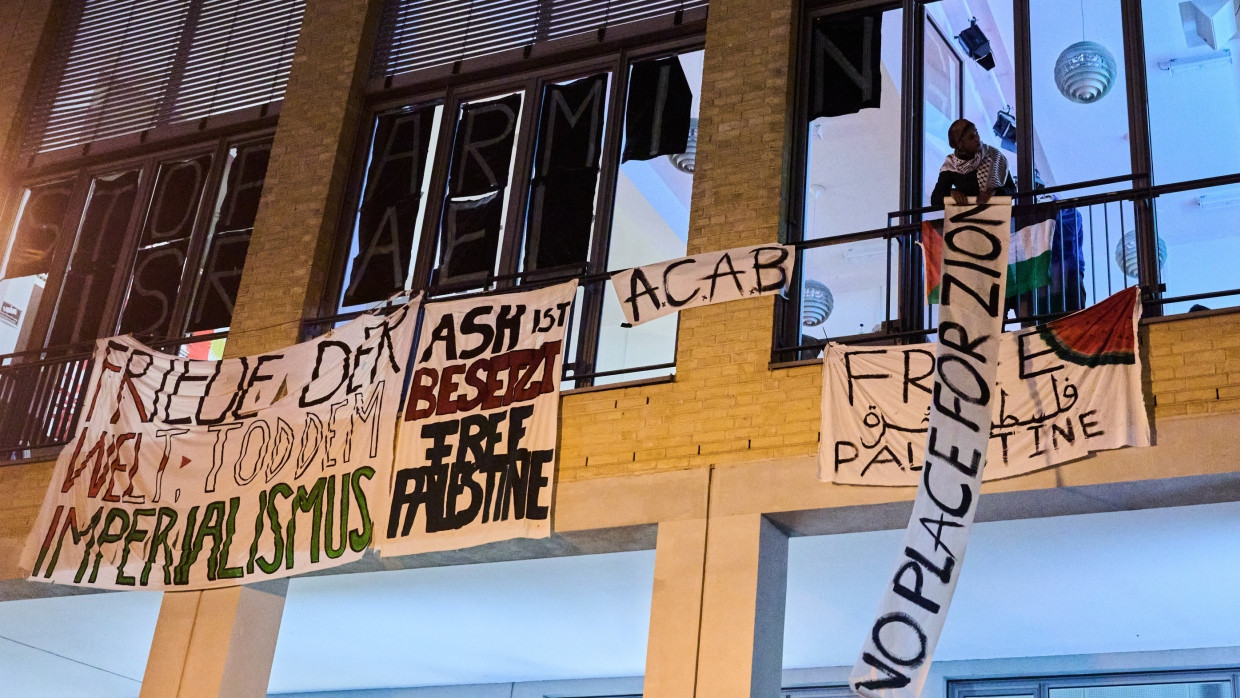 STOP ARMIN
ISRAEL
FRIEDE DER
WELT. TOD DEM
IMPERIALISMUS
ASH IST
BESETZT
FREE
PALESTINE
A.C.A.B
NO PLACE FOR ZION
FREE
PALESTINE